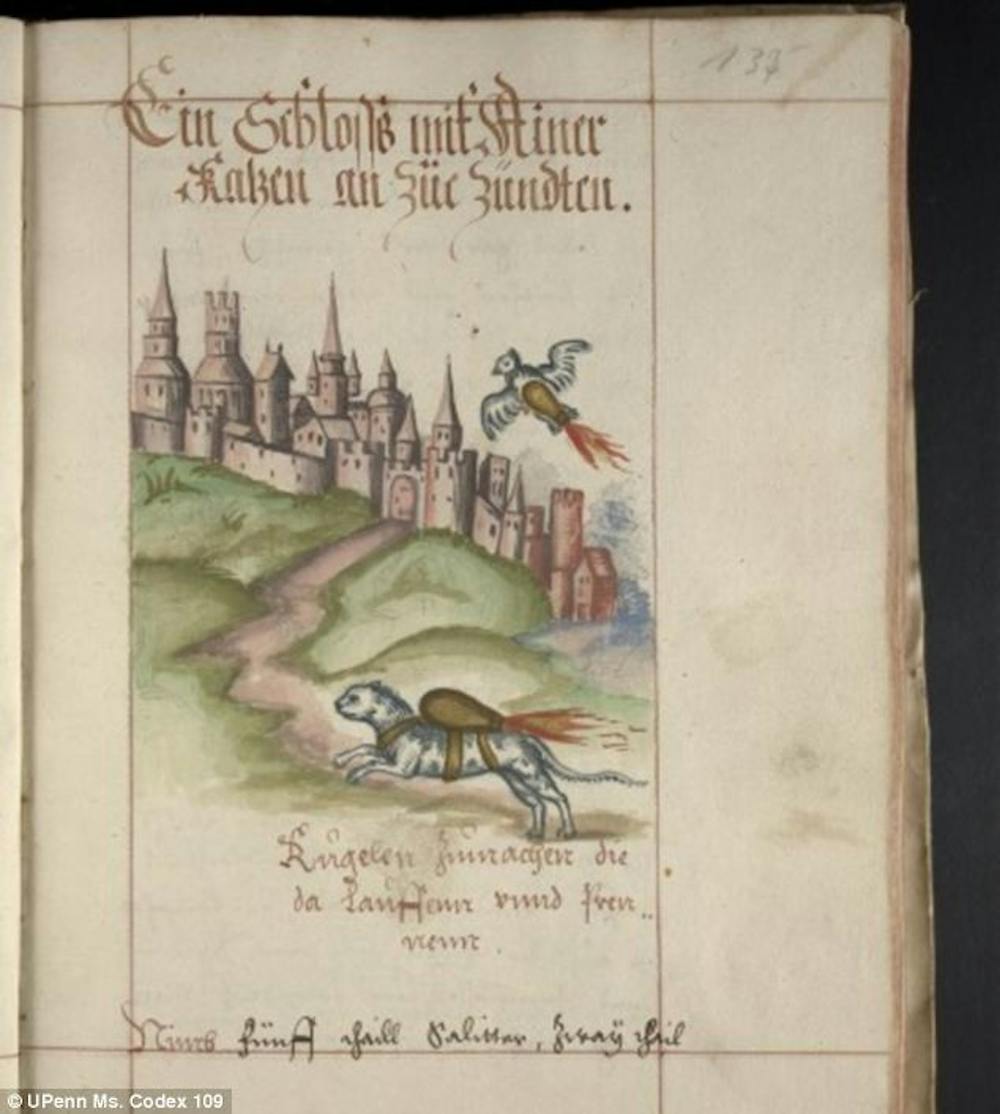 137
Ein Schloss mit Ainer
Katzen an züe zündten.
Kugelen zumachen die
da Lauffenn vnnd Pren„
nenn.
Nimb fünff thaill Salitter, Zway thail
© UPenn Ms. Codex 109